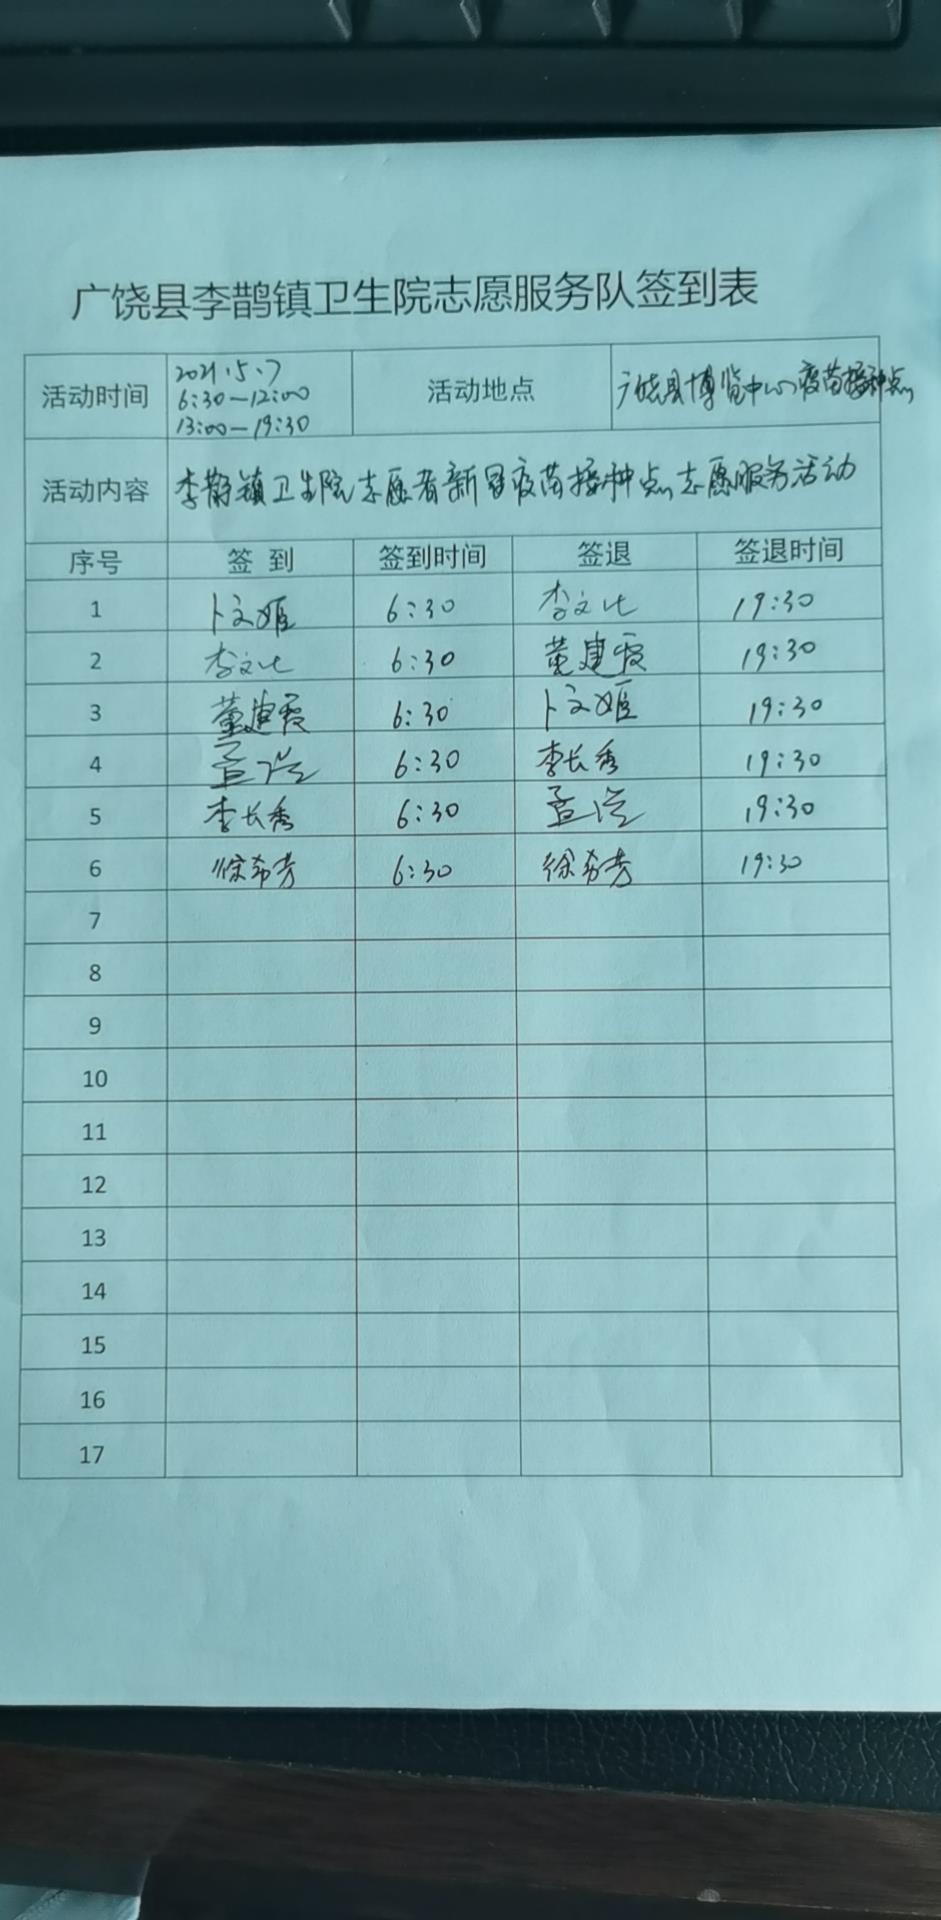 广饶县李鹊镇卫生院志愿服务队签到表
活动时间 2021.5.7 6:30—12:00 13:00—19:30 活动地点 广饶县博览中心疫苗接种点
活动内容 李鹊镇卫生院志愿者新冠疫苗接种点志愿服务活动
序号 签到 签到时间 签退 签退时间
1 卜文姬 6:30 李文化 19:30
2 李文化 6:30 董建霞 19:30
3 董建霞 6:30 卜文姬 19:30
4 孟 6:30 李长秀 19:30
5 李长秀 6:30 孟 19:30
6 徐希芳 6:30 徐希芳 19:30
7
8
9
10
11
12
13
14
15
16
17